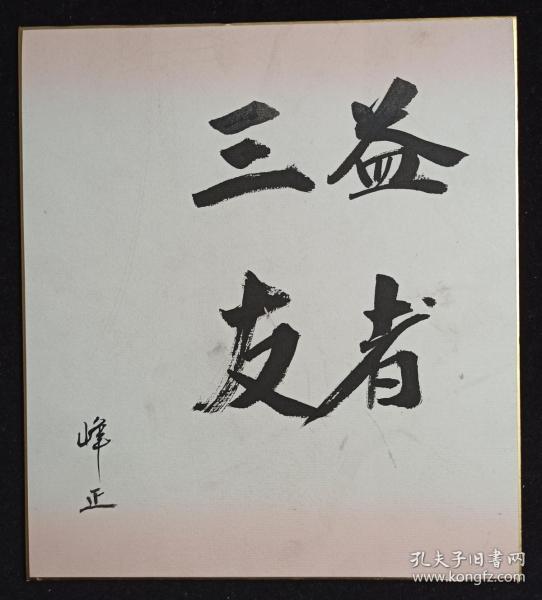 益者
三友
峰正
孔夫子旧书网
www.kongfz.com